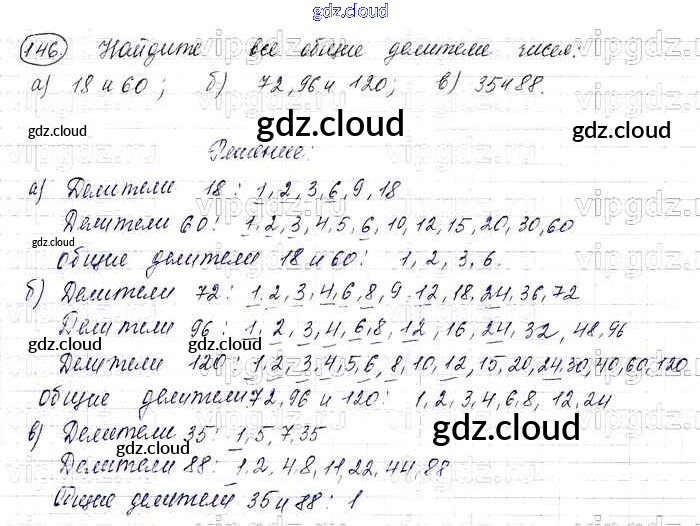 gdz.cloud
146. Найдите все общие делители чисел:
а) 18 и 60; б) 72, 96 и 120; в) 35 и 88.
gdz.cloud gdz.cloud gdz.cloud
Решение:
а) Делители 18: 1, 2, 3, 6, 9, 18
Делители 60: 1, 2, 3, 4, 5, 6, 10, 12, 15, 20, 30, 60
gdz.cloud
общие делители 18 и 60: 1, 2, 3, 6.
б) Делители 72: 1, 2, 3, 4, 6, 8, 9, 12, 18, 24, 36, 72
Делители 96: 1, 2, 3, 4, 6, 8, 12, 16, 24, 32, 48, 96
gdz.cloud gdz.cloud gdz.cloud
Делители 120: 1, 2, 3, 4, 5, 6, 8, 10, 12, 15, 20, 24, 30, 40, 60, 120
общие делители 72, 96 и 120: 1, 2, 3, 4, 6, 8, 12, 24
в) Делители 35: 1, 5, 7, 35
gdz.cloud gdz.cloud
Делители 88: 1, 2, 4, 8, 11, 22, 44, 88
Общие делители 35 и 88: 1
gdz.cloud